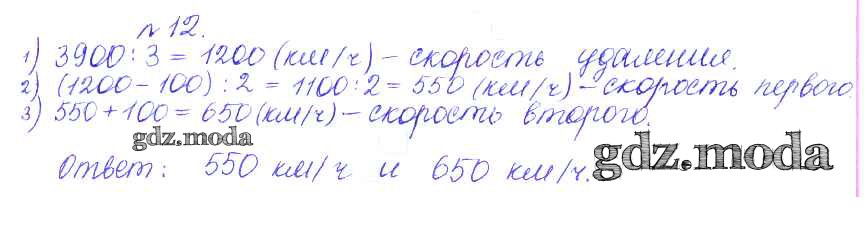 № 12.
1) 3900 : 3 = 1200 (км/ч) – скорость удаления.
2) (1200 – 100) : 2 = 1100 : 2 = 550 (км/ч) – скорость первого.
3) 550 + 100 = 650 (км/ч) – скорость второго.
gdz.moda
gdz.moda
Ответ: 550 км/ч и 650 км/ч.